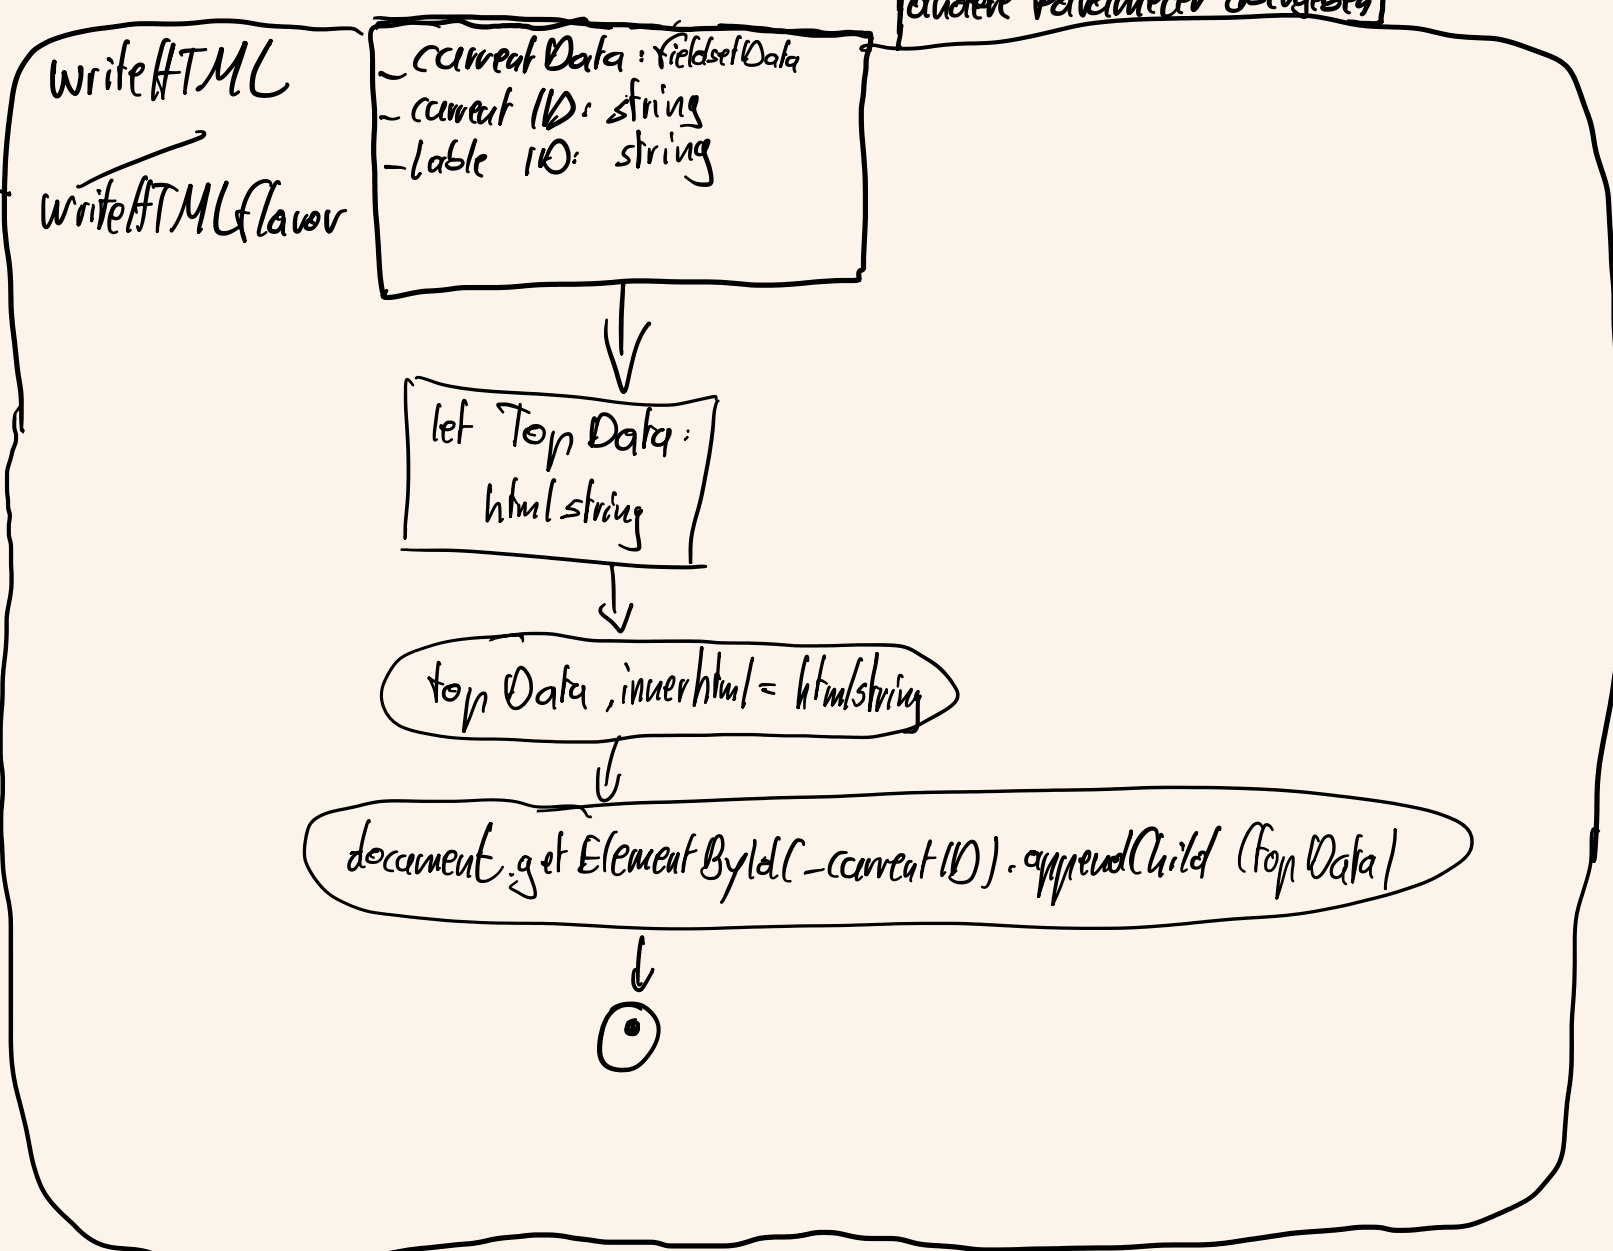 andere Parameter
writeHTML
/
writeHTMLflavor
_currentData: FieldsetData
_current ID: string
_lable ID: string
let Top Data:
htmlstring
top Data,innerhtml = htmlstring
document.getElementById(_currentID).appendChild (topData)